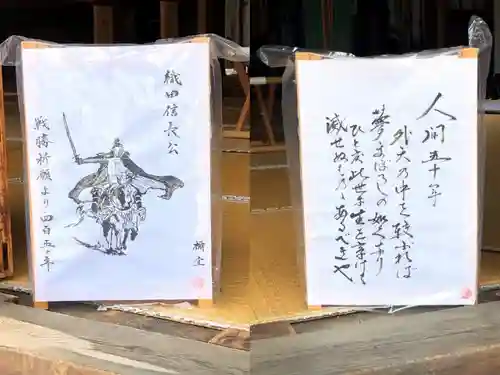 織田信長公
戦勝祈願より四百五十年
人間五十年
外天の中を較ぶれば
夢まぼろしの如くなり
ひと度此世に生を享け
滅せぬものゝあるべきや